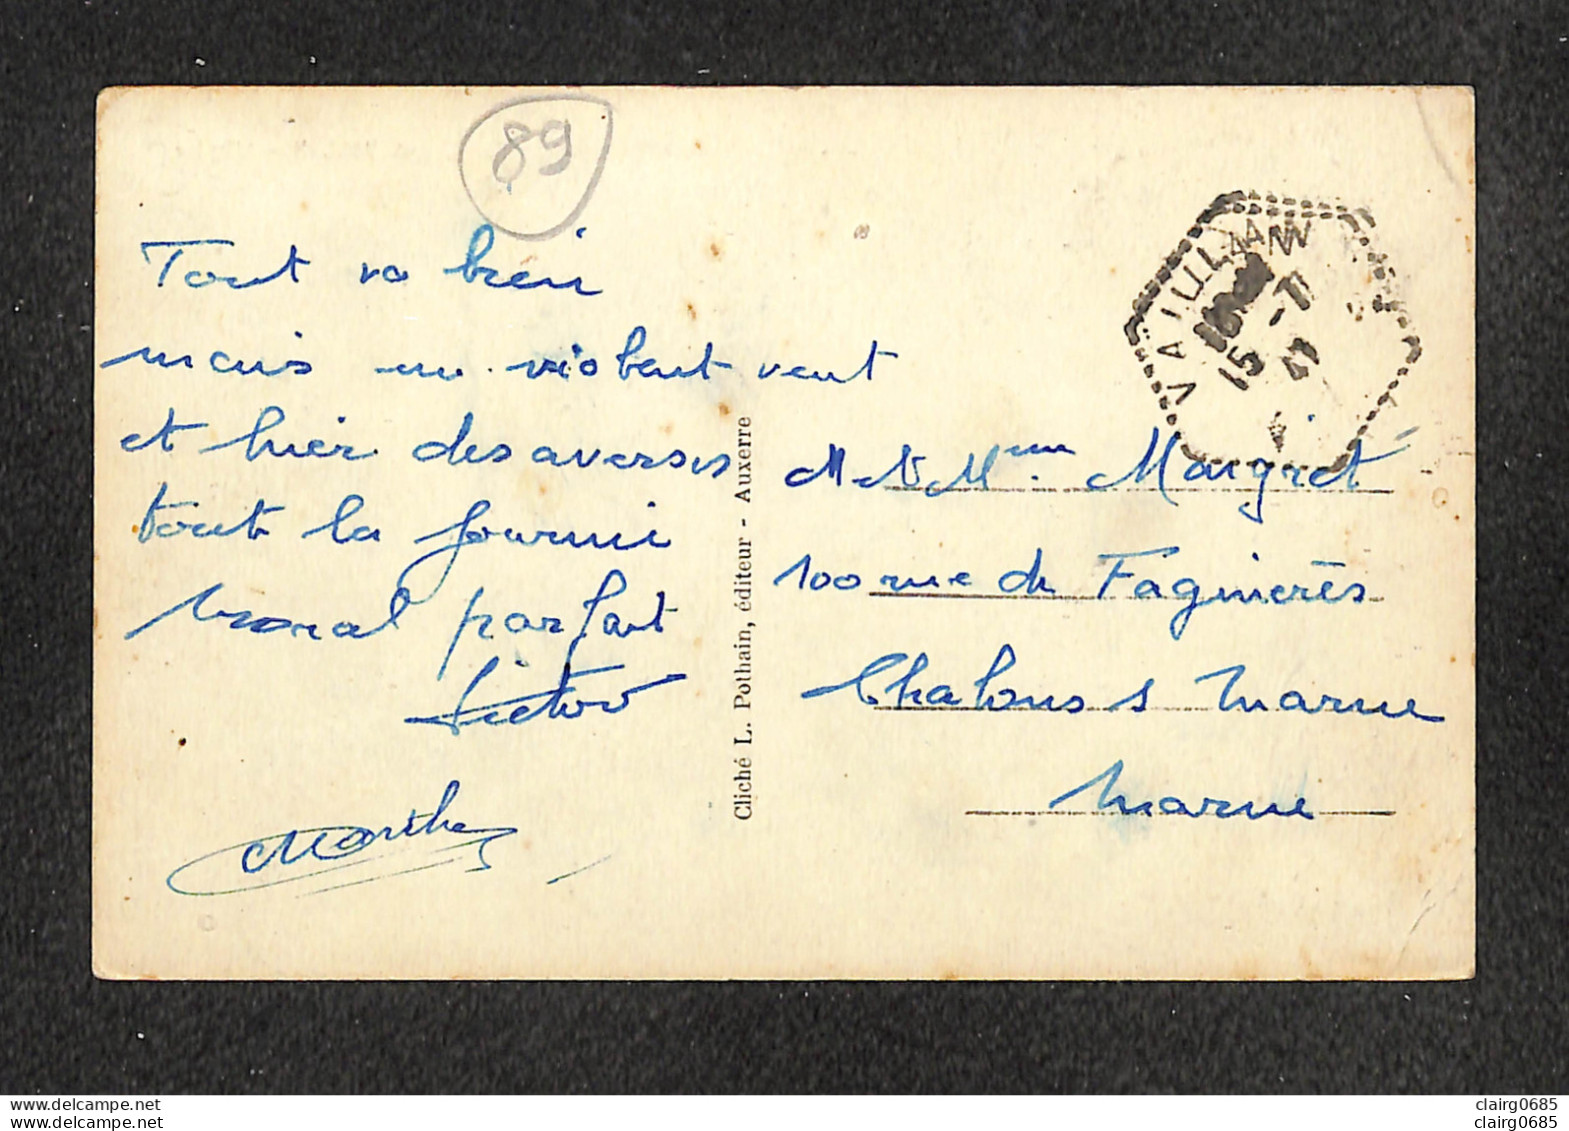 89
Tout va bien
mais un violent vent
et hier des averses
tout la journée
moral parfait
Victor
Marthe
Cliché L. Pothain, éditeur - Auxerre
VAILLANN
15 -7
M & Mme Maigret
100 rue de Fagnières
Chalons s Marne
Marne
www.delcampe.net
clairg0685
www.delcampe.net
clairg0685